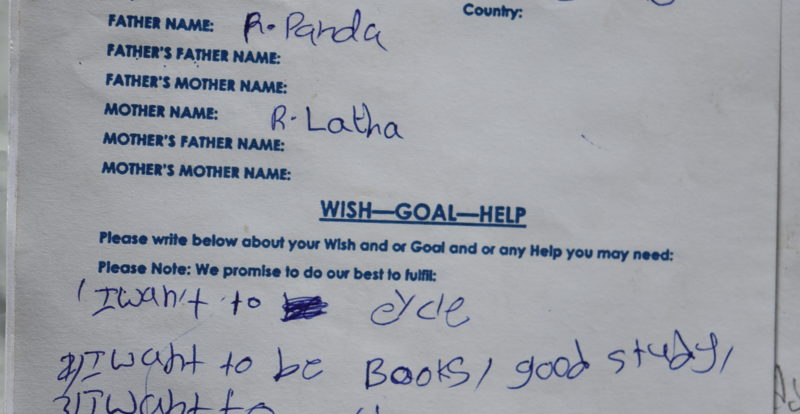 Country:
FATHER NAME: R. Panda
FATHER'S FATHER NAME:
FATHER'S MOTHER NAME:
MOTHER NAME: R. Latha
MOTHER'S FATHER NAME:
MOTHER'S MOTHER NAME:
WISH—GOAL—HELP
Please write below about your Wish and or Goal and or any Help you may need:
Please Note: We promise to do our best to fulfil:
1 I want to cycle
2) I want to be Books, good study,
3) I want to